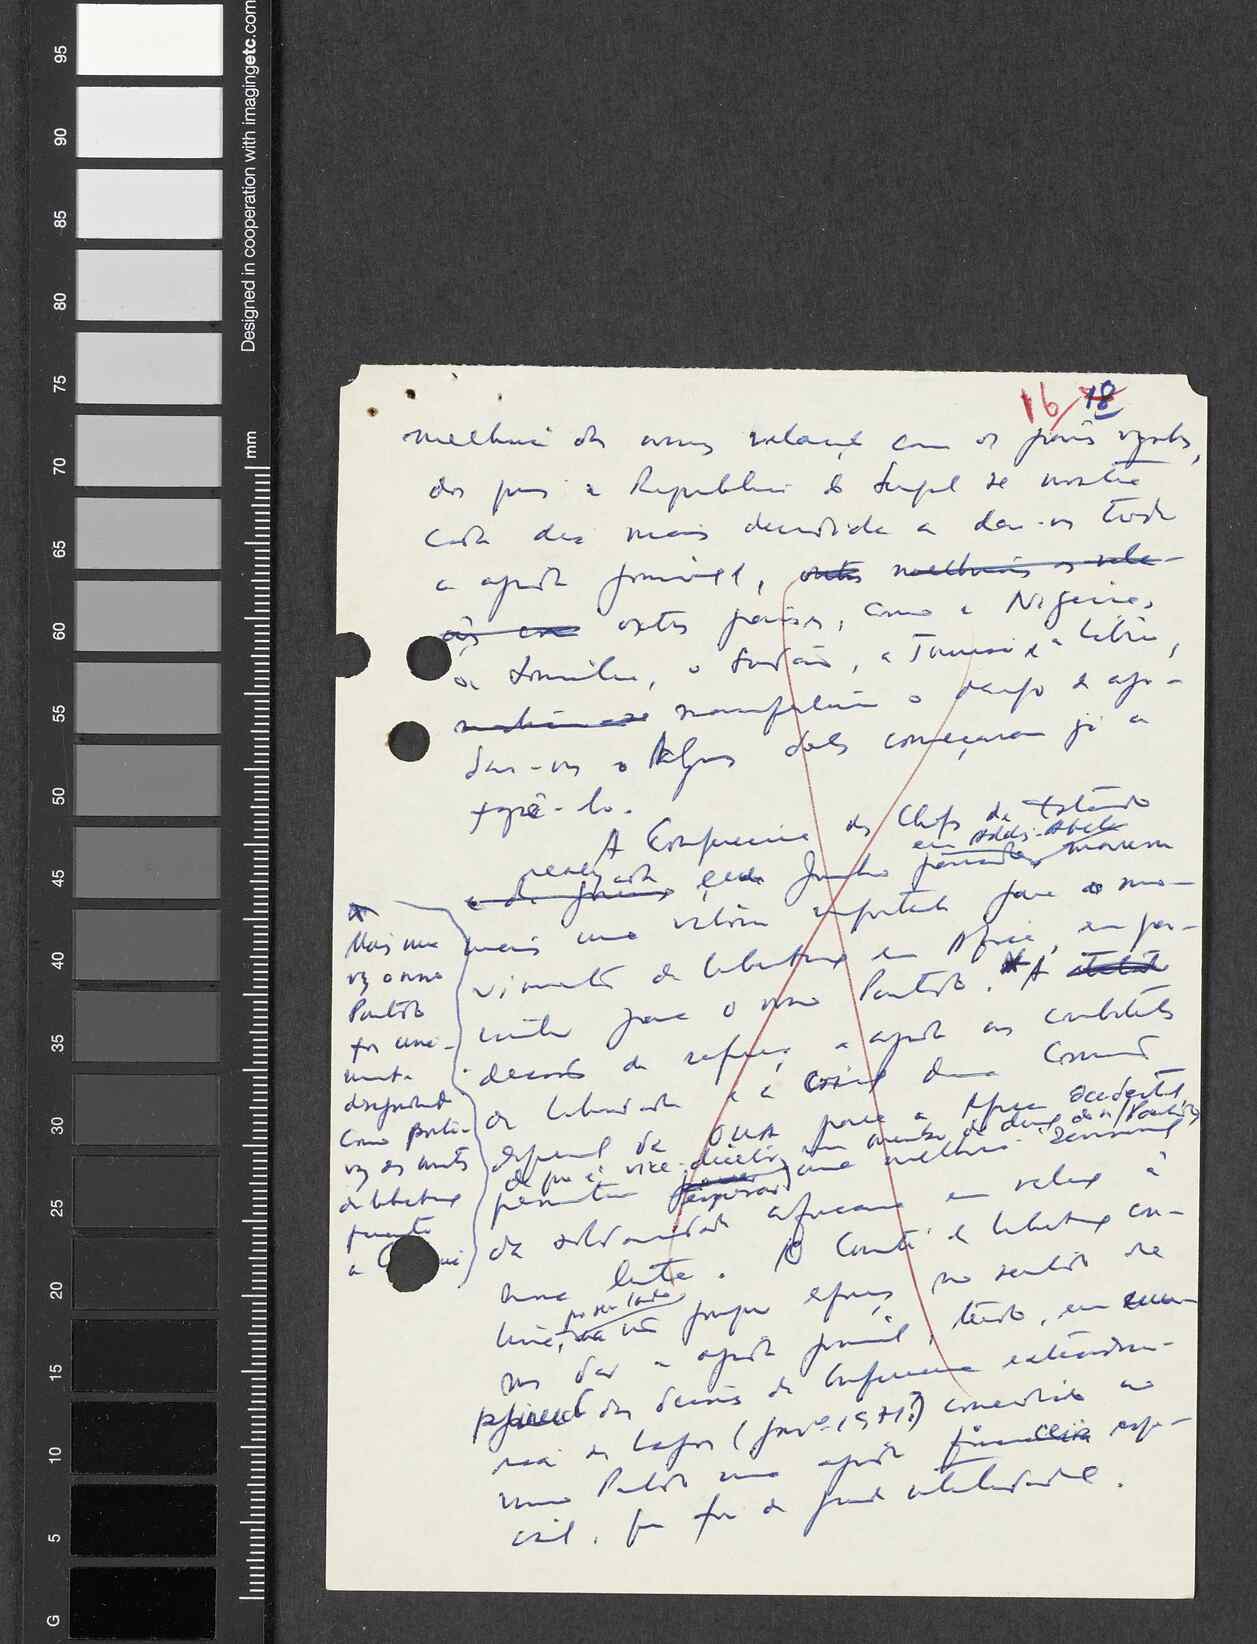 95
90
85
80
75
70
65
60
55
50
45
40
35
30
25
20
15
10
5
G
Designed in cooperation with imagingetc.com
mm
16 18
melhoria das nossas relações com os países
dos quais a República do Senegal se mostra
cada vez mais decidida a dar-nos toda
a ajuda possível, outros melhoria as rela-
ções com outros países, como a Nigéria,
a Somália, o Sudão, a Tunísia e a Líbia,
manifestaram o desejo de aju-
dar-nos e Alguns deles começaram já a
fazê-lo.
A Conferência dos Chefes de Estado
em Addis-Abeba
realizada em Junho passado, marcou
mais uma vitória importante para o mo-
vimento de libertação em África, em par-
ticular para o nosso Partido. A
decisão de reforçar a ajuda aos combatentes
da liberdade e a criação duma Comissão
especial da OUA para a África ocidental,
de que é vice-director um membro da direcção do n/Partido
permitem esperar uma melhoria
da solidariedade africana em relação à
nossa luta. O Comité de Libertação con-
tinua, por seu lado, a fazer esforços no sentido de
nos dar a ajuda possível, tendo, em
das decisões da Conferência extraordi-
nária de Lagos (1971?) concedido ao
nosso Partido uma ajuda financeira espe-
cial, que foi de grande utilidade.
Mais uma
vez o nosso
Partido
foi
como porta-
voz dos mov.tos
de libertação